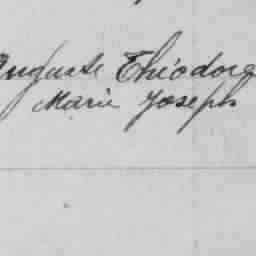 Auguste Théodore
Marie Joseph